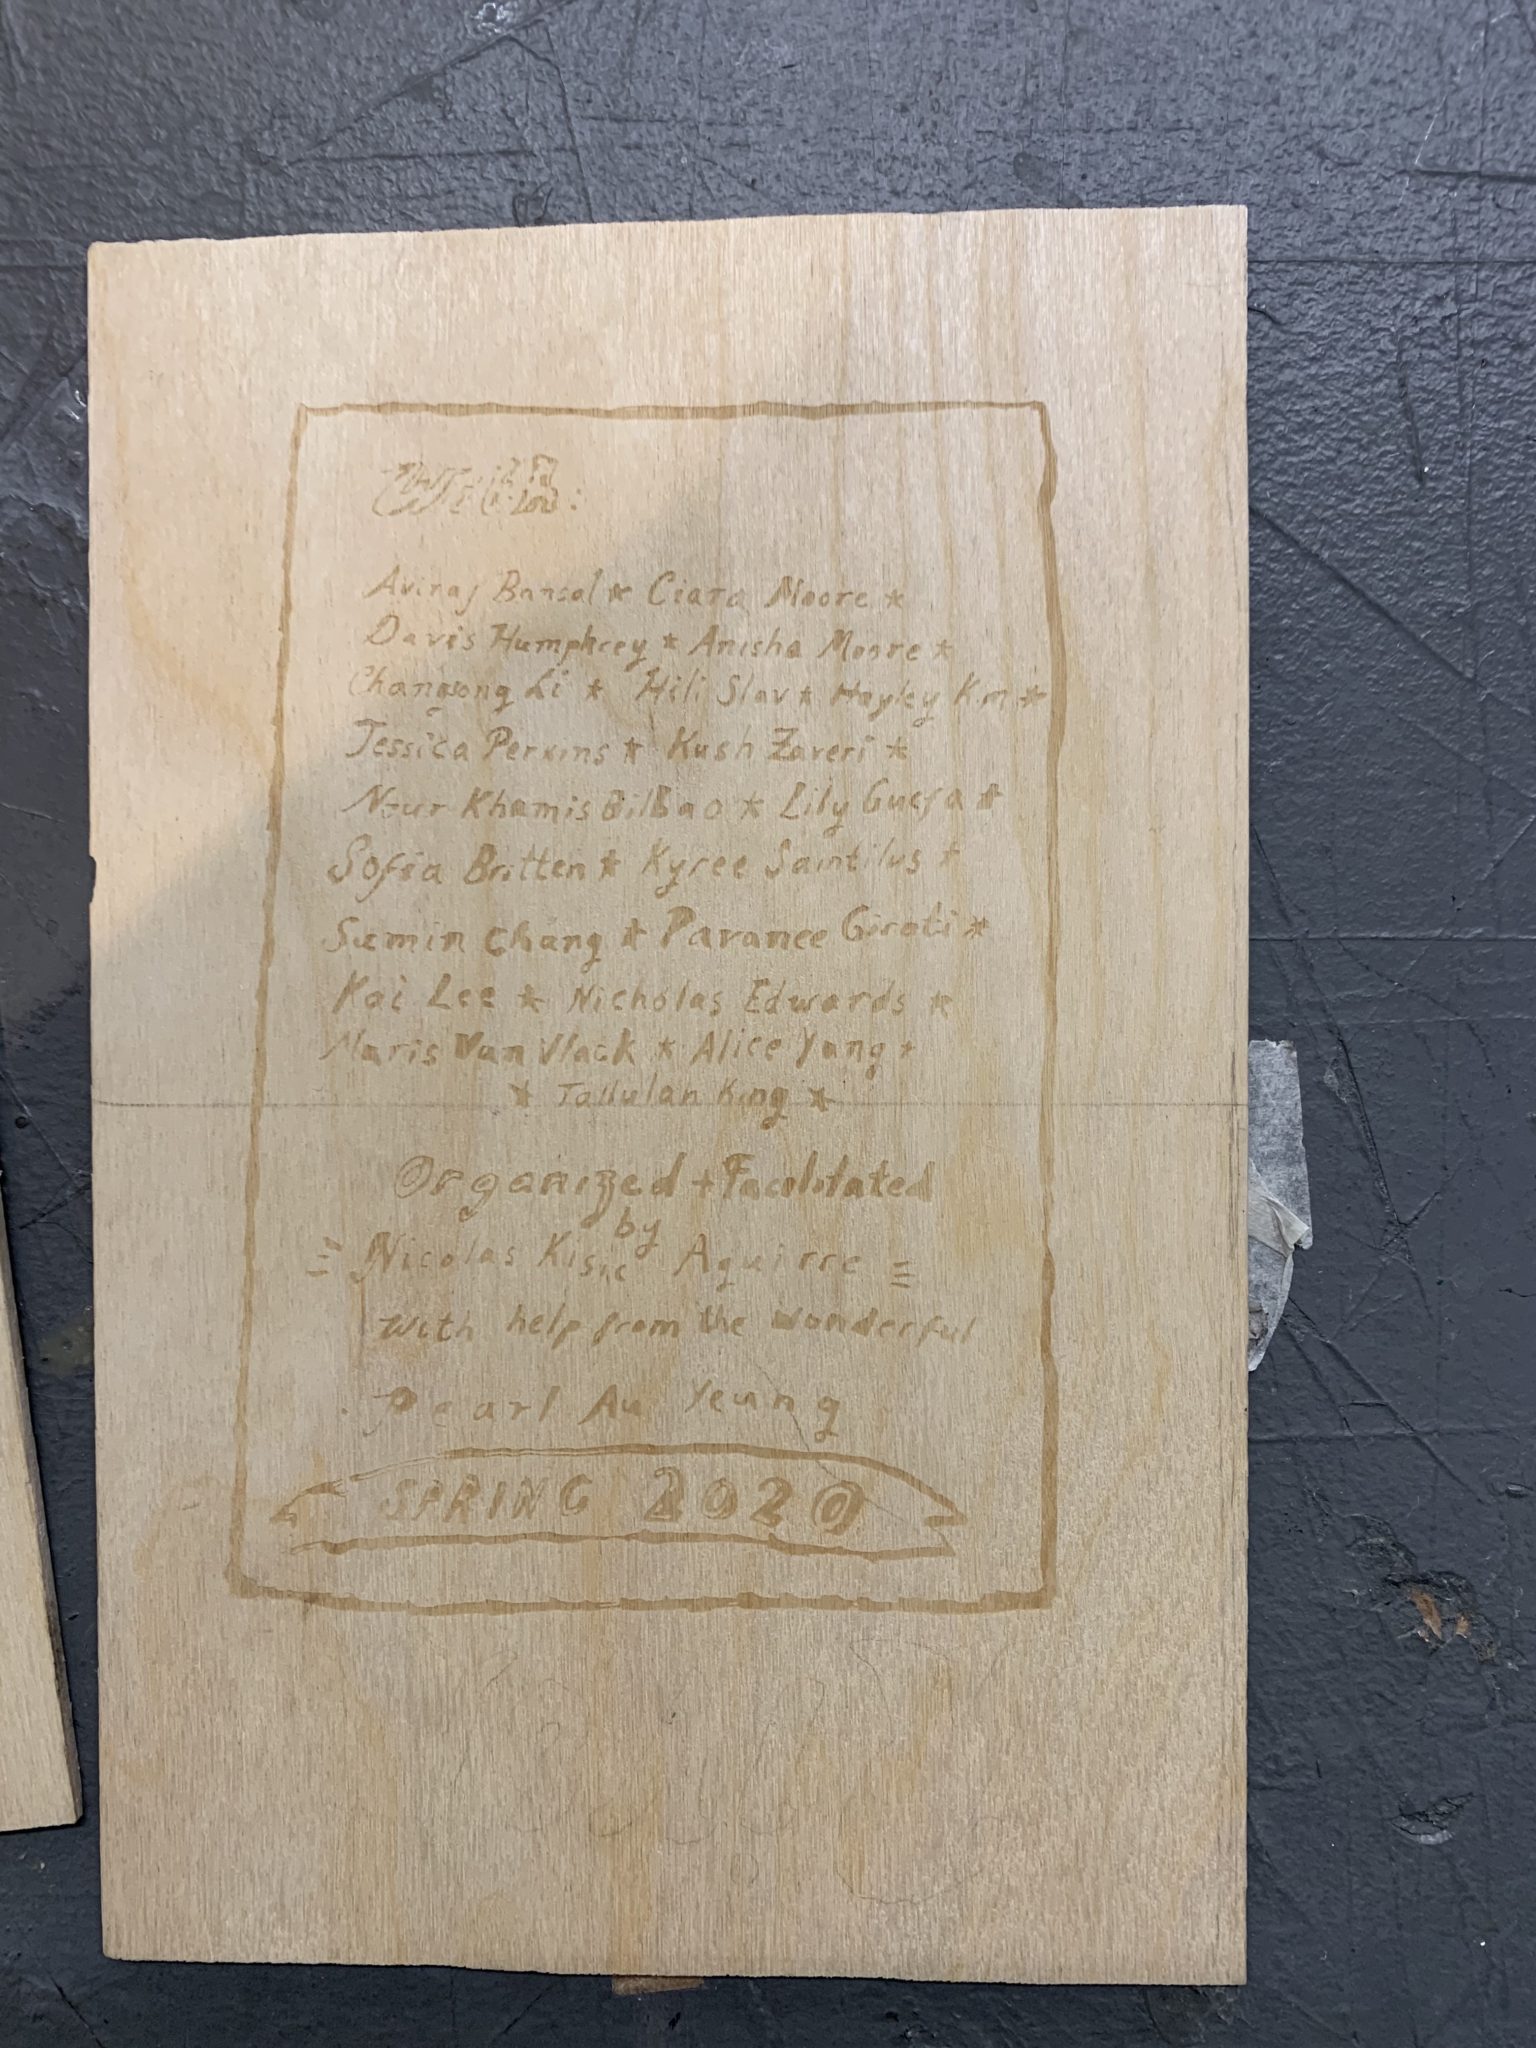 With:
Aviraj Bansal * Ciara Moore *
Davis Humphrey * Anisha Moore *
Changsong Li * Hili Slav * Hayley Kim *
Jessica Perkins * Kush Zaveri *
Nour Khamis Bilbao * Lily
Sofia Britten * Kyree Saintilus *
Sumin Chang * Paranee
Kai Lee * Nicholas Edwards *
Maris Van Vlack * Alice Yang *
* Tallulah King *
Organized + Facilitated
by
Nicolas Kisic Aguirre
with help from the wonderful
Pearl Au Yeung
SPRING 2020